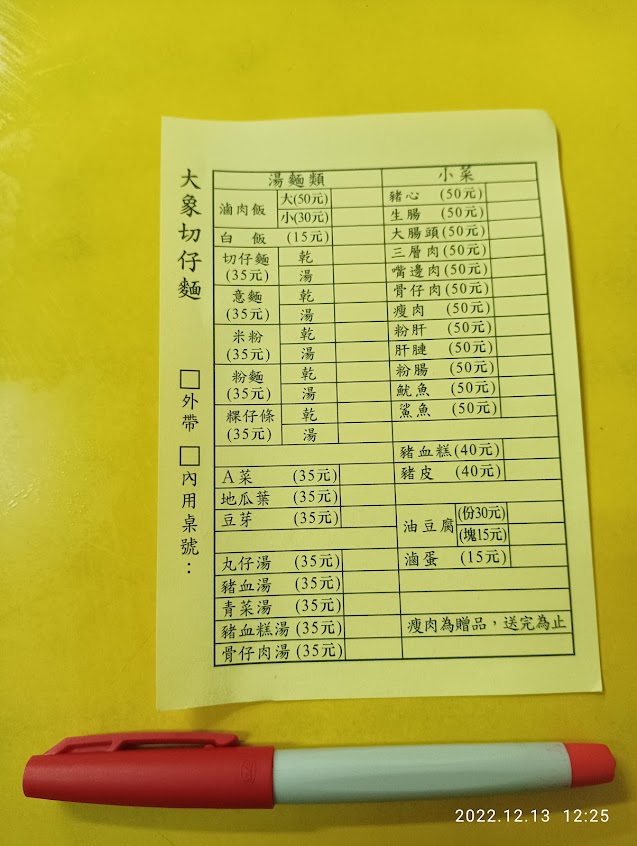 大象切仔麵
□外帶 □內用桌號：
湯麵類
滷肉飯 大(50元)
小(30元)
白飯 (15元)
切仔麵 (35元) 乾
湯
意麵 (35元) 乾
湯
米粉 (35元) 乾
湯
粉麵 (35元) 乾
湯
粿仔條 (35元) 乾
湯
A菜 (35元)
地瓜葉 (35元)
豆芽 (35元)
丸仔湯 (35元)
豬血湯 (35元)
青菜湯 (35元)
豬血糕湯 (35元)
骨仔肉湯 (35元)
小菜
豬心 (50元)
生腸 (50元)
大腸頭(50元)
三層肉(50元)
嘴邊肉(50元)
骨仔肉(50元)
瘦肉 (50元)
粉肝 (50元)
肝腱 (50元)
粉腸 (50元)
魷魚 (50元)
鯊魚 (50元)
豬血糕(40元)
豬皮 (40元)
油豆腐 (份30元)
(塊15元)
滷蛋 (15元)
瘦肉為贈品，送完為止
2022.12.13 12:25